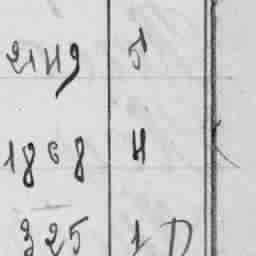 2149 5
1868 4
325 1 D